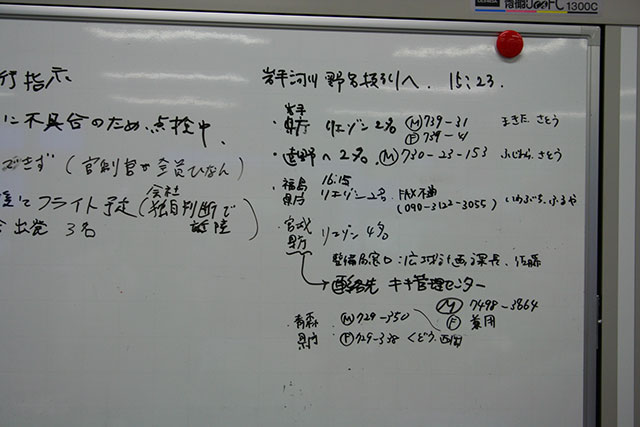 1300C
行指示
に不具合のため点検中、
できず(官制官が全員ひなん)
フライト予定(会社独自判断で
離陸)
3名
岩手河川 野名技引へ. 15:23.
岩手
・県庁 リエゾン2名 Ⓜ739-31 まきた. さとう
Ⓕ739-41
・遠野へ2名. Ⓜ730-23-153 ふじむら. さとう
・福島 16:15
県庁 リエゾン2名. FAX不通
(090-3122-3055)
・宮城 リエゾン4名
県庁
整備局窓口:広域計画課長、佐藤
→連絡先 キキ管理センター
Ⓜ7498-3864
Ⓕ 兼用
・青森 Ⓜ729-350
県庁 Ⓕ729-338 くどう. 西岡